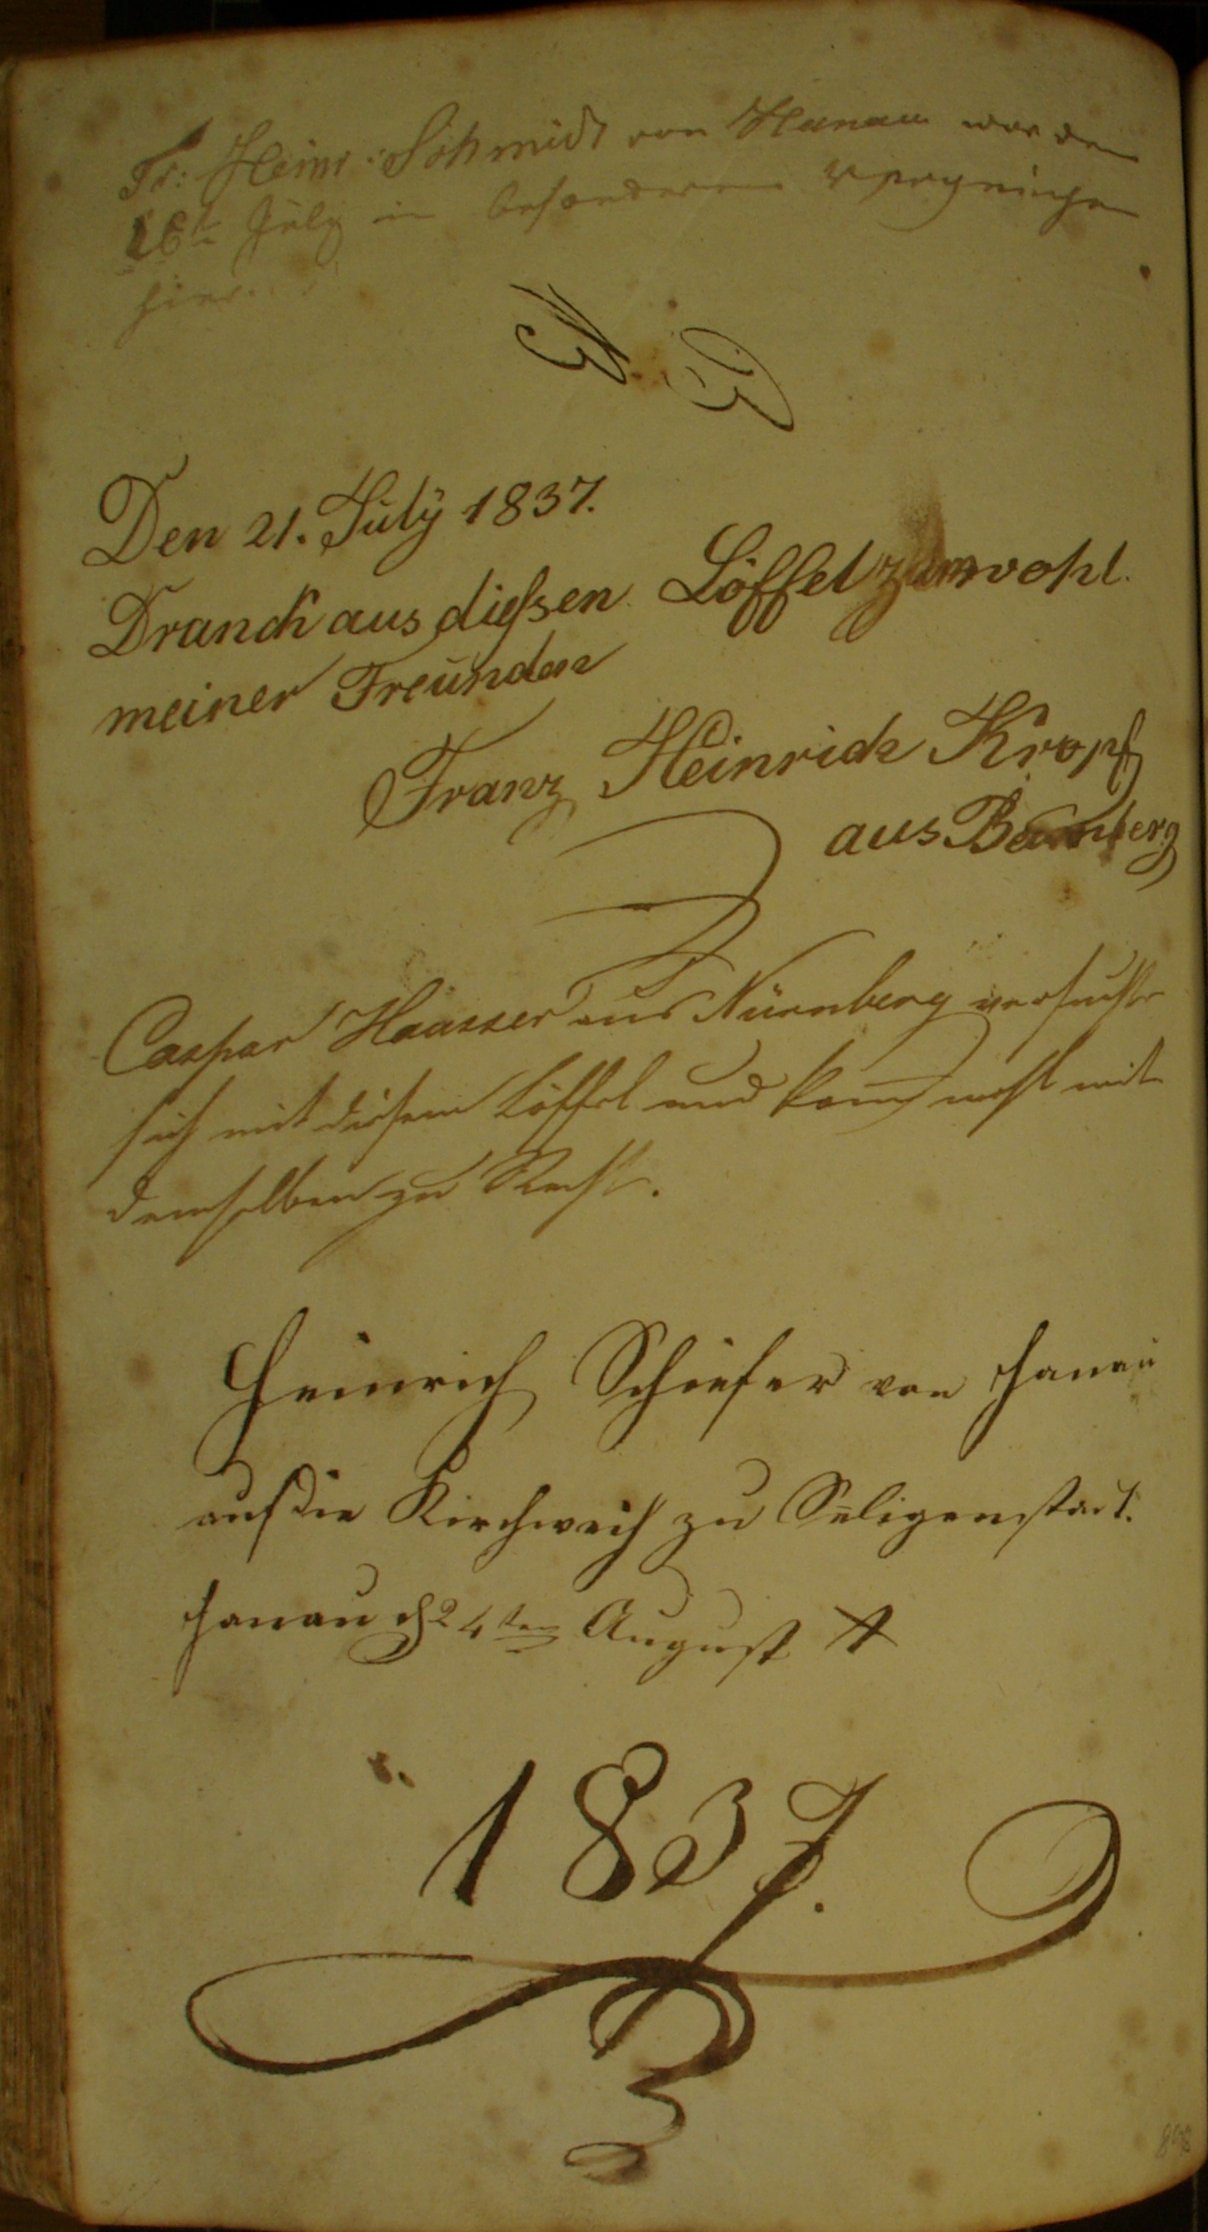 Fr: Heinr: Schmidt von Hanau war den
16t July in besonderem Vergnügen
hier.
Den 21. July 1837.
Dranck aus dießen Löffel zum wohl.
meiner Freunden
Franz Heinrich Kropf
aus Bamberg
Caspar Haasser aus Nürnberg versuchte
sich mit diesem Löffel und kam nicht mit
demselben zu Recht.
Heinrich Schiefer von Hanau
auf die Kirchweih zu Seligenstadt.
Hanau d 24ten August
1837.